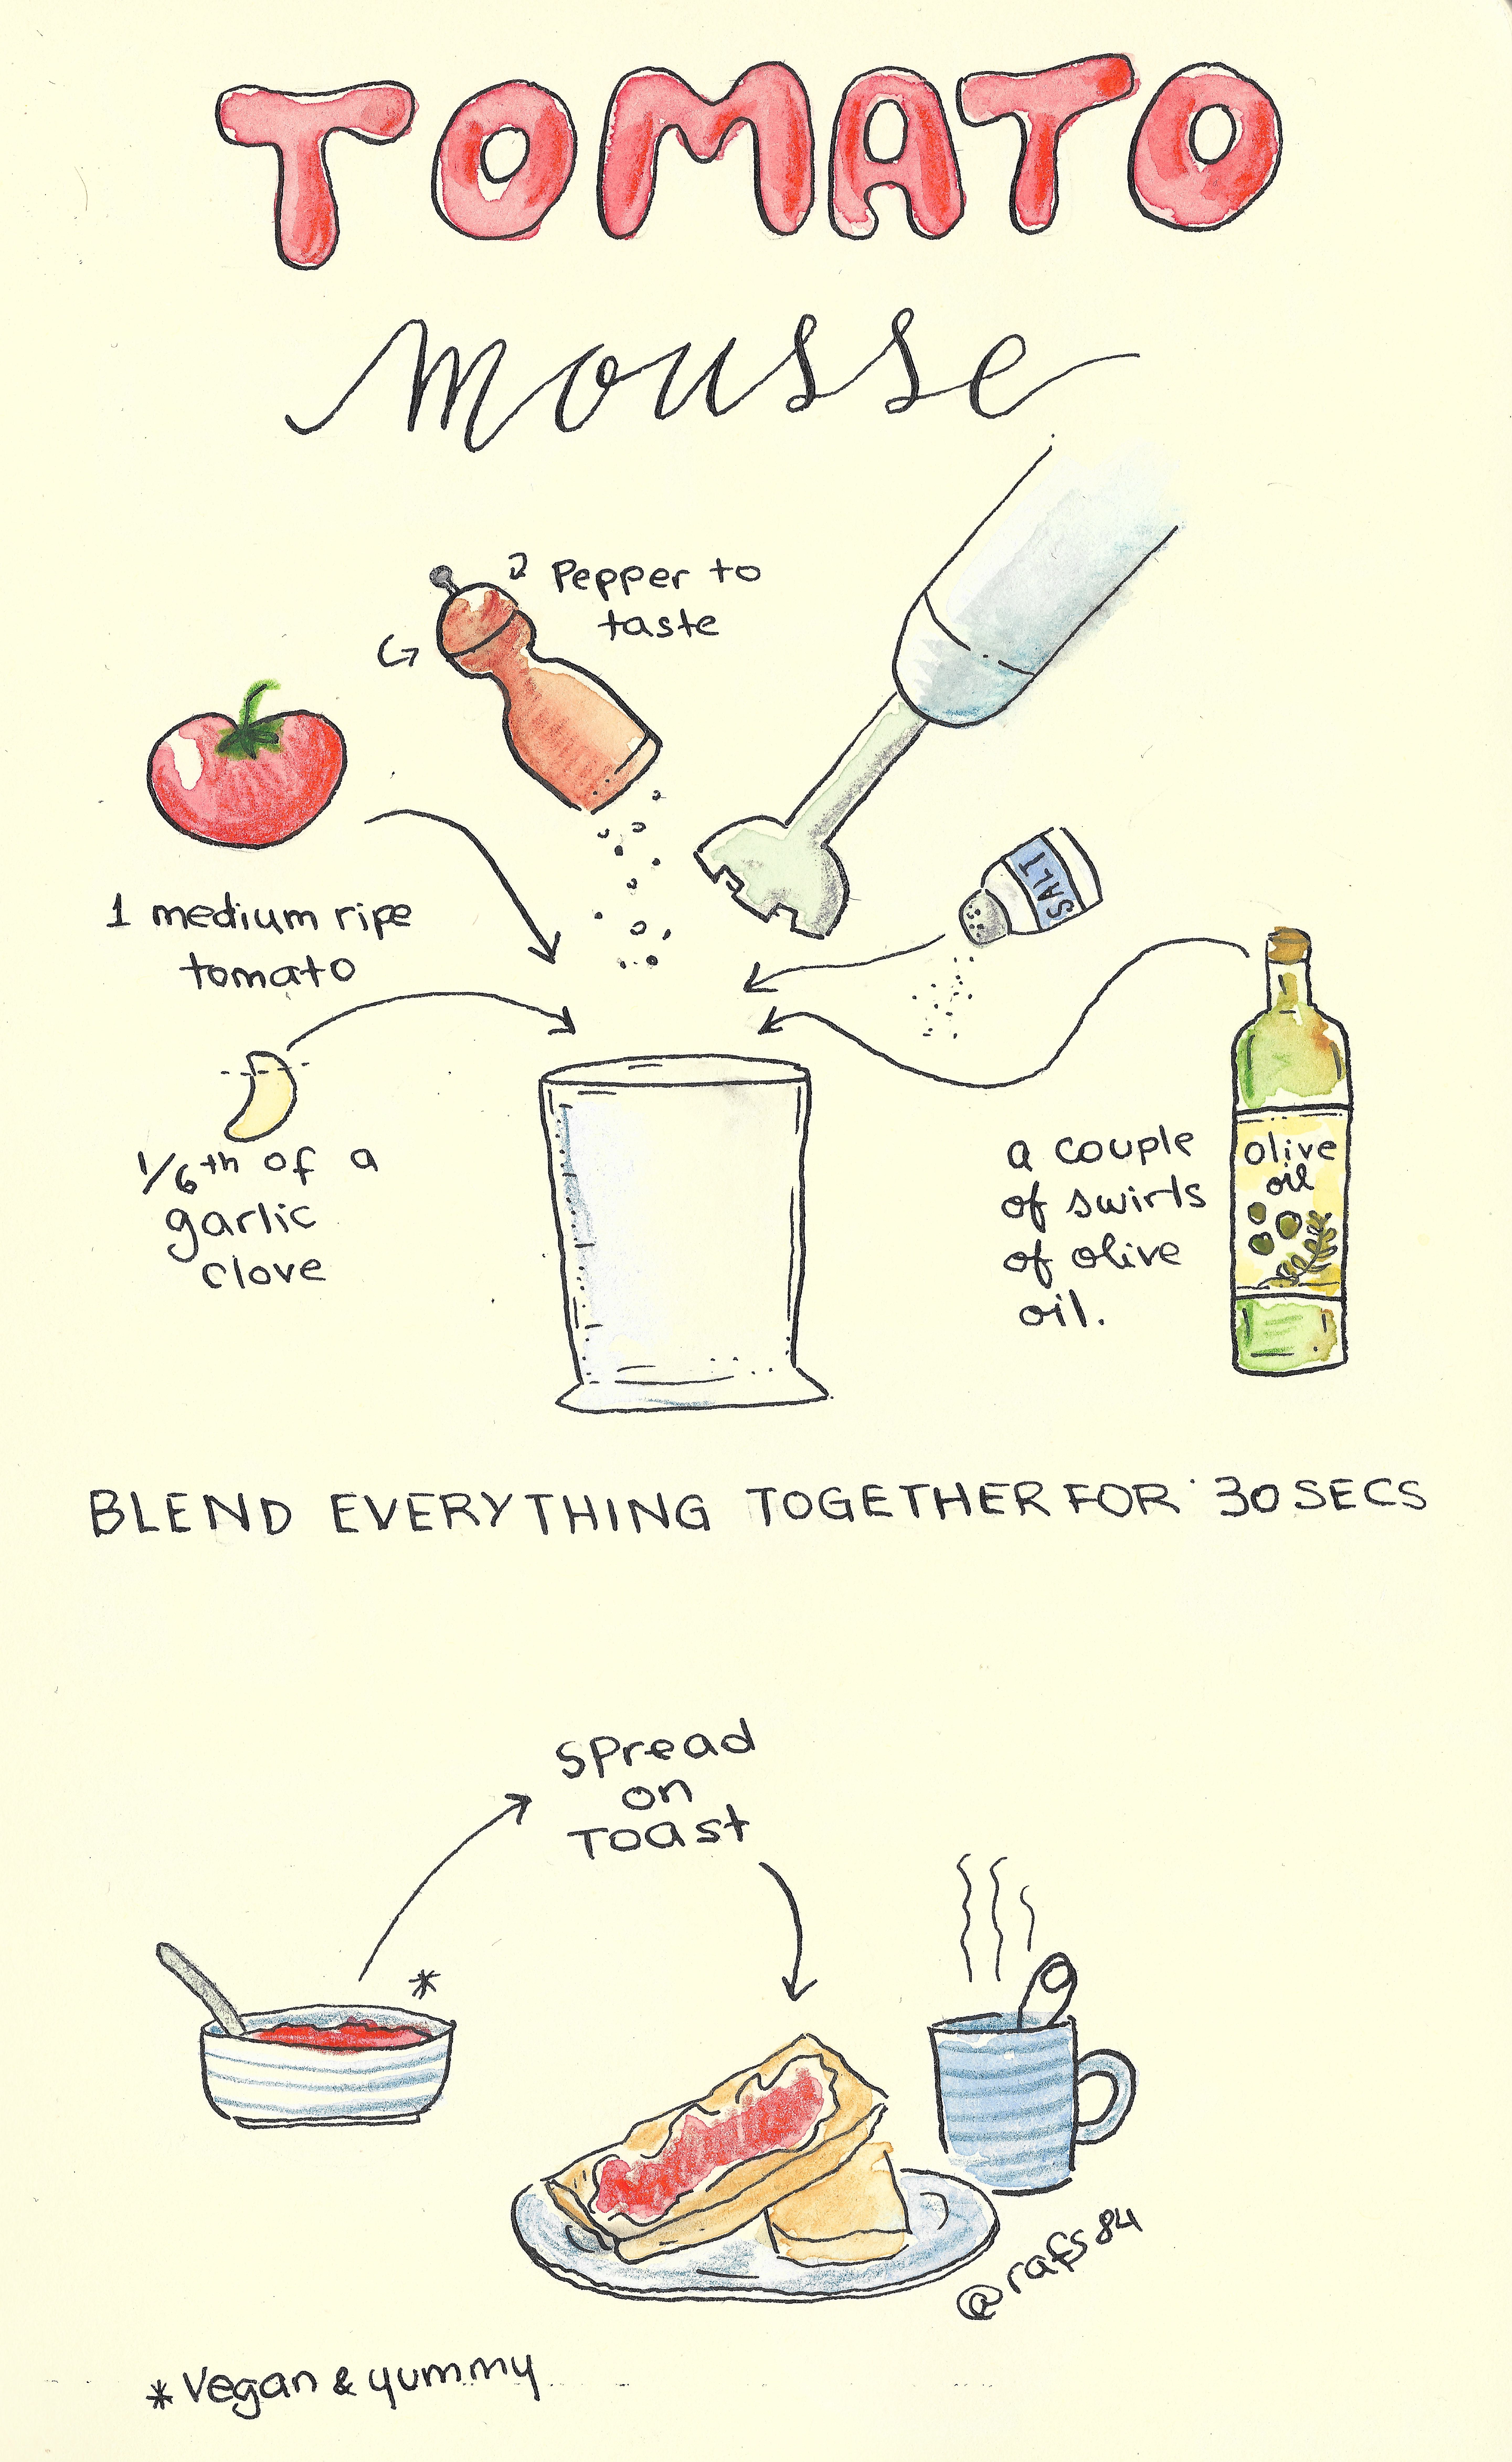 TOMATO
mousse
Pepper to
taste
1 medium ripe
tomato
SALT
1/6th of a
garlic
clove
a couple
of swirls
of olive
oil.
olive
oil
BLEND EVERYTHING TOGETHER FOR 30 SECS
Spread
on
Toast
@rafs84
*Vegan & yummy